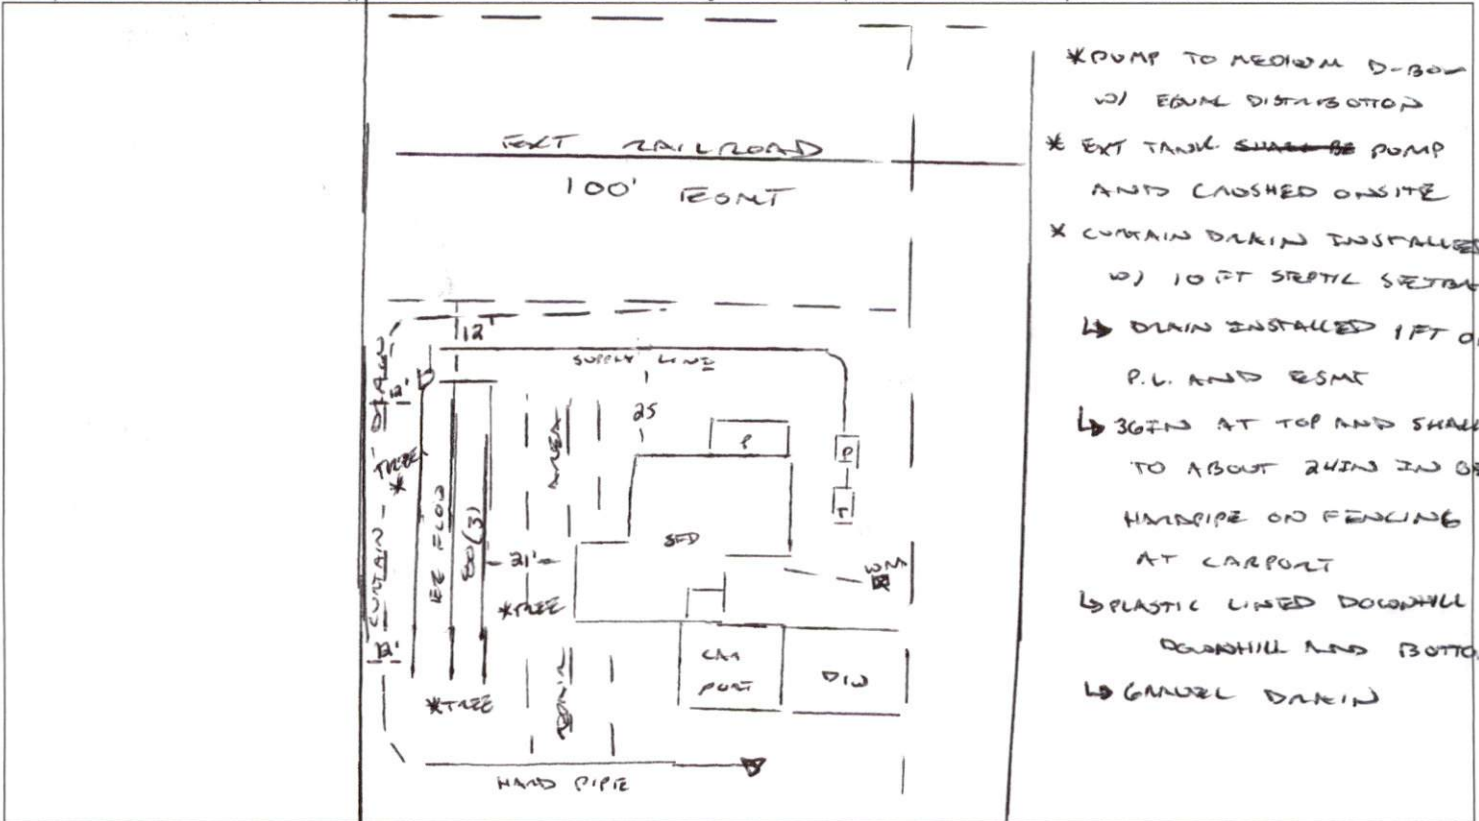 EXT RAILROAD
100' ESMT
12'
SUPPLY LINE
12'
CURTAIN DRAIN
25
P
P
T
TREE
*
AREA
EZ FLOW
80(3)
SFD
21'
WM
*TREE
12'
CAR
PORT
D/W
REPAIR
*TREE
HARD PIPE
* PUMP TO MEDIUM D-BOX
W/ EQUAL DISTRIBUTION
* EXT TANK SHALL BE PUMP
AND CRUSHED ONSITE
* CURTAIN DRAIN INSTALLED
W/ 10 FT SEPTIC SETBA
↳ DRAIN INSTALLED 1FT O
P.L. AND ESMT
↳ 36IN AT TOP AND SHALL
TO ABOUT 24IN IN
HARDPIPE ON FENCING
AT CARPORT
↳ PLASTIC LINED DOWNHILL
DOWNHILL AND BOTTO
↳ GRAVEL DRAIN